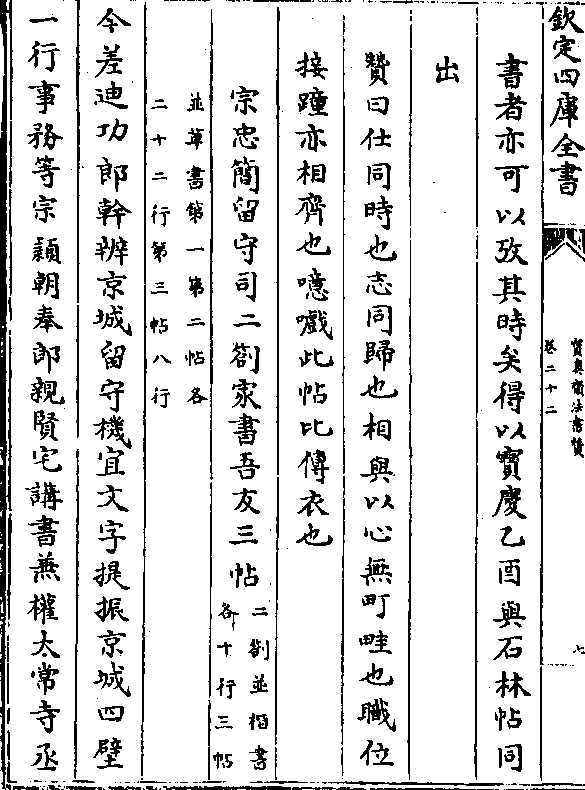 欽定四庫全書
寶真齋法書贊
卷二十二
七
書者亦可以攷其時矣得以寶慶乙酉與石林帖同
出
贊曰仕同時也志同歸也相與以心無町畦也職位
接踵亦相齊也噫戲此帖比傳衣也
宗忠簡留守司二劄家書吾友三帖
二劄並楷書
各十行三帖
並草書第一第二帖各
二十二行第三帖八行
今差迪功郎幹辦京城留守機宜文字提振京城四壁
一行事務等宗穎朝奉郎親賢宅講書兼權太常寺丞